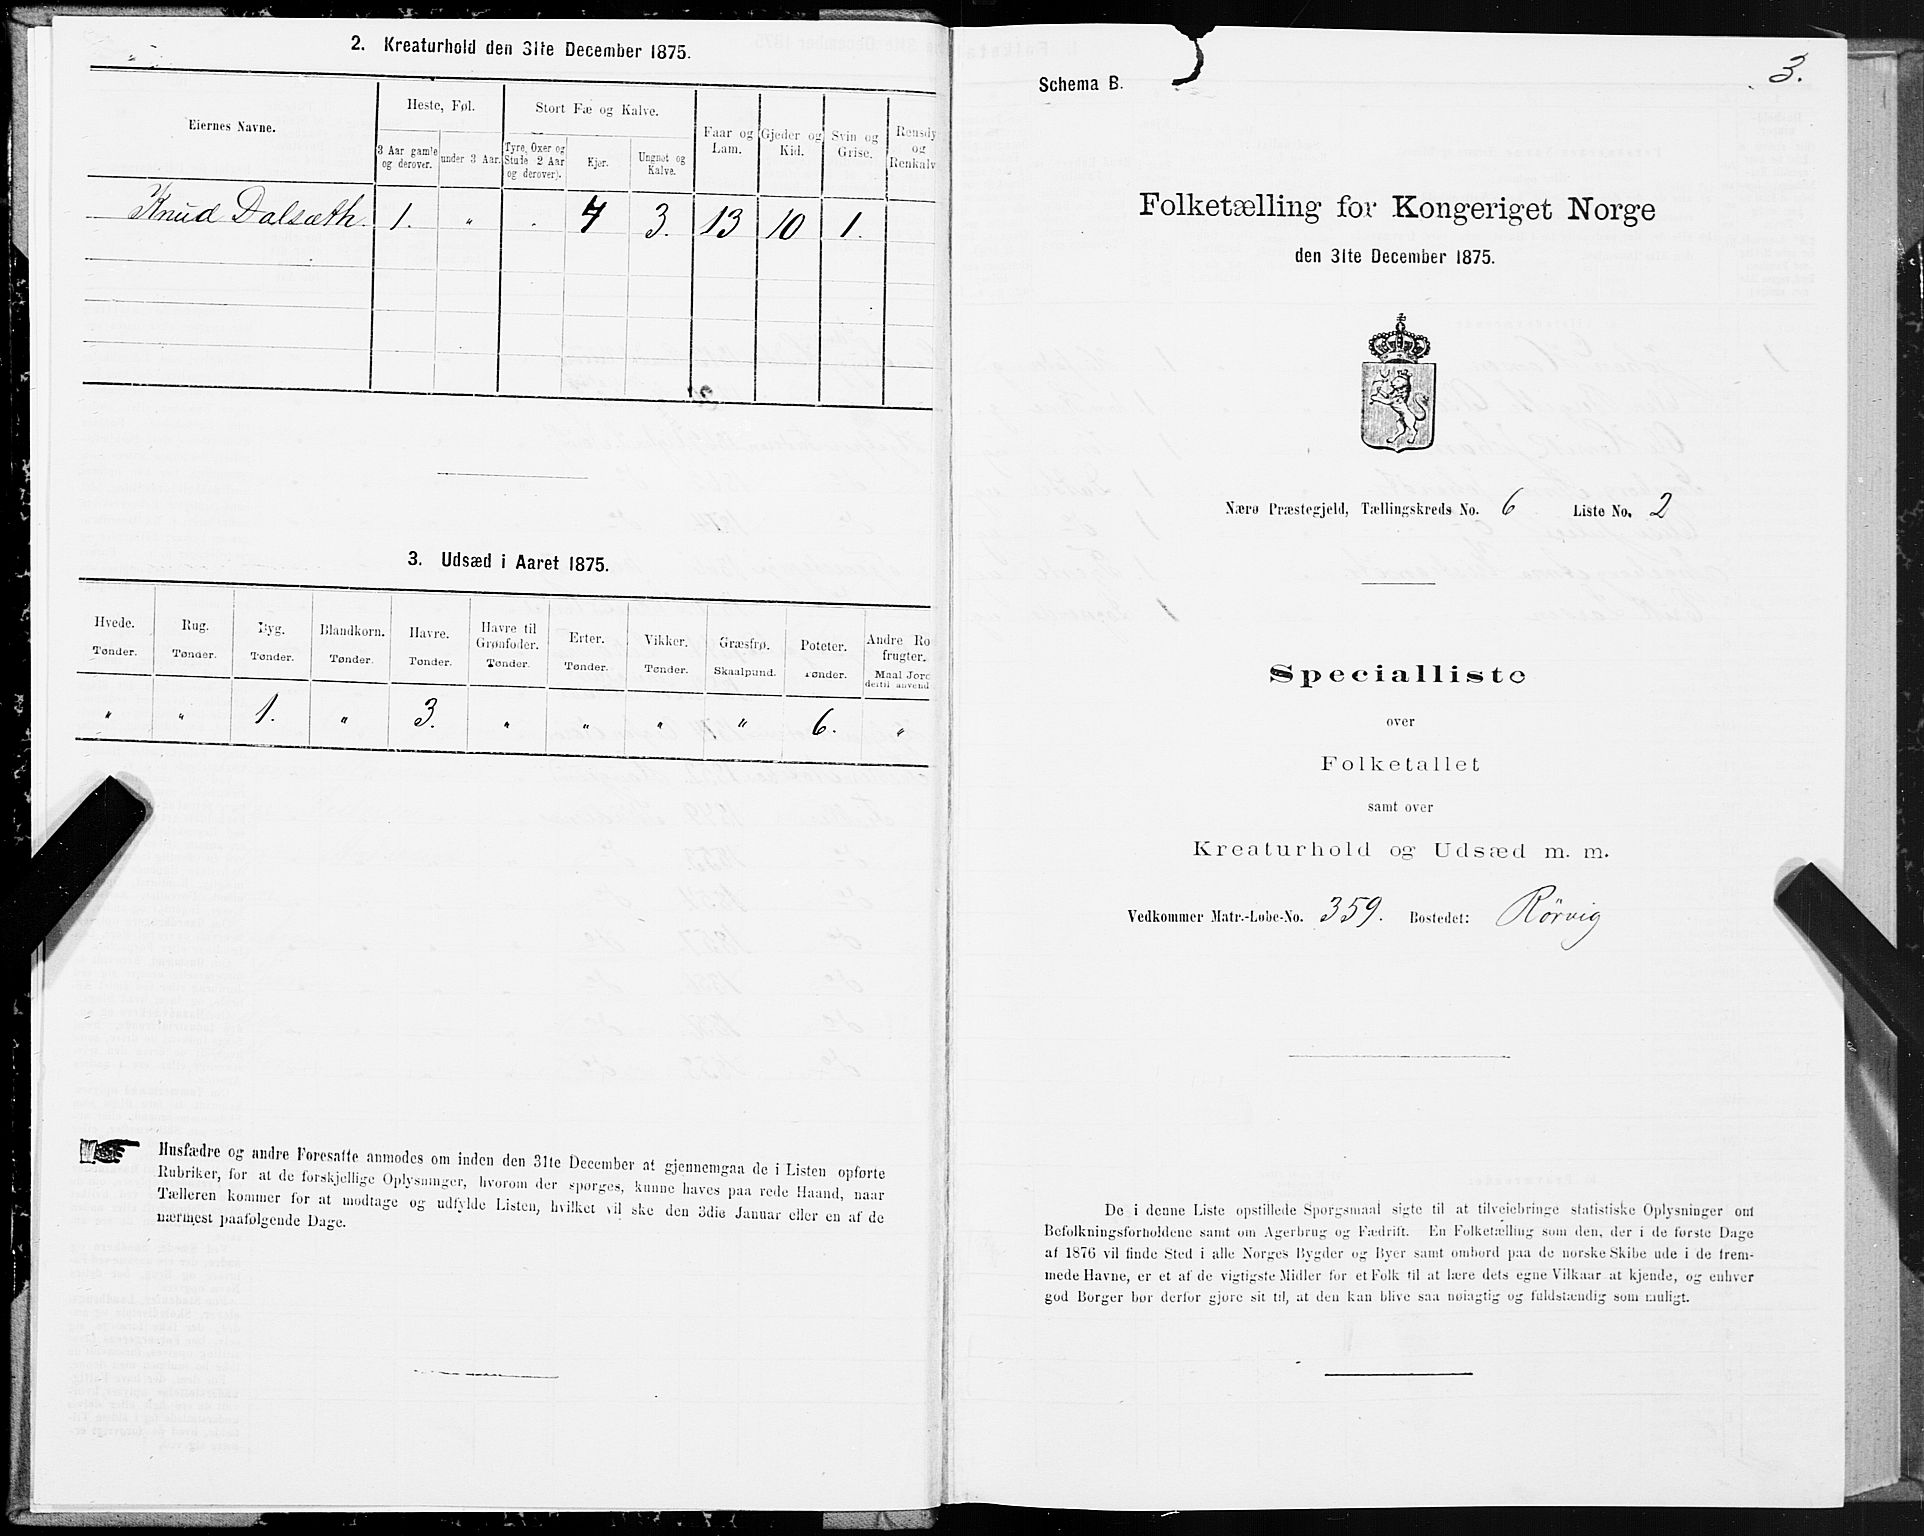 2. Kreaturhold den 31te December 1875.
Eiernes Navne.
Heste, Føl.
Stort Fæ og Kalve.
Faar og Lam.
Gjeder og Kid.
Svin og Grise.
Rensdy og Renkalv
3 Aar gamle og derover.
under 3 Aar.
Tyre, Oxer og Stude 2 Aar og derover).
Kjør.
Ungnøt og Kalve.
Knud Dalsæth. 1. " . 4 3. 13 10 1.
3. Udsæd i Aaret 1875.
Hvede. Rug. Byg. Blandkorn. Havre. Havre til Grønfoder. Erter. Vikker. Græsfrø. Poteter. Andre Ro frugter.
Tønder. Tønder. Tønder. Tønder. Tønder. Tønder. Tønder. Tønder. Skaalpund. Tønder. Maal Jord dertil anvend
" " 1. " 3. " " " " 6. "
Husfædre og andre Foresatte anmodes om inden den 31te December at gjennemgaa de i Listen opførte
Rubriker, for at de forskjellige Oplysninger, hvorom der spørges, kunne haves paa rede Haand, naar
Tælleren kommer for at modtage og udfylde Listen, hvilket vil ske den 3die Januar eller en af de
nærmest paafølgende Dage.
3.
Schema B.
Folketælling for Kongeriget Norge
den 31te December 1875.
Nærø Præstegjeld, Tællingskreds No. 6 Liste No. 2
Specialliste
over
Folketallet
samt over
Kreaturhold og Udsæd m. m.
Vedkommer Matr.-Løbe-No. 359. Bostedet: Rørvig
De i denne Liste opstillede Spørgsmaal sigte til at tilveiebringe statistiske Oplysninger om
Befolkningsforholdene samt om Agerbrug og Fædrift. En Folketælling som den, der i de første Dage
af 1876 vil finde Sted i alle Norges Bygder og Byer samt ombord paa de norske Skibe ude i de frem-
mede Havne, er et af de vigtigste Midler for et Folk til at lære dets egne Vilkaar at kjende, og enhver
god Borger bør derfor gjøre sit til, at den kan blive saa nøiagtig og fuldstændig som muligt.